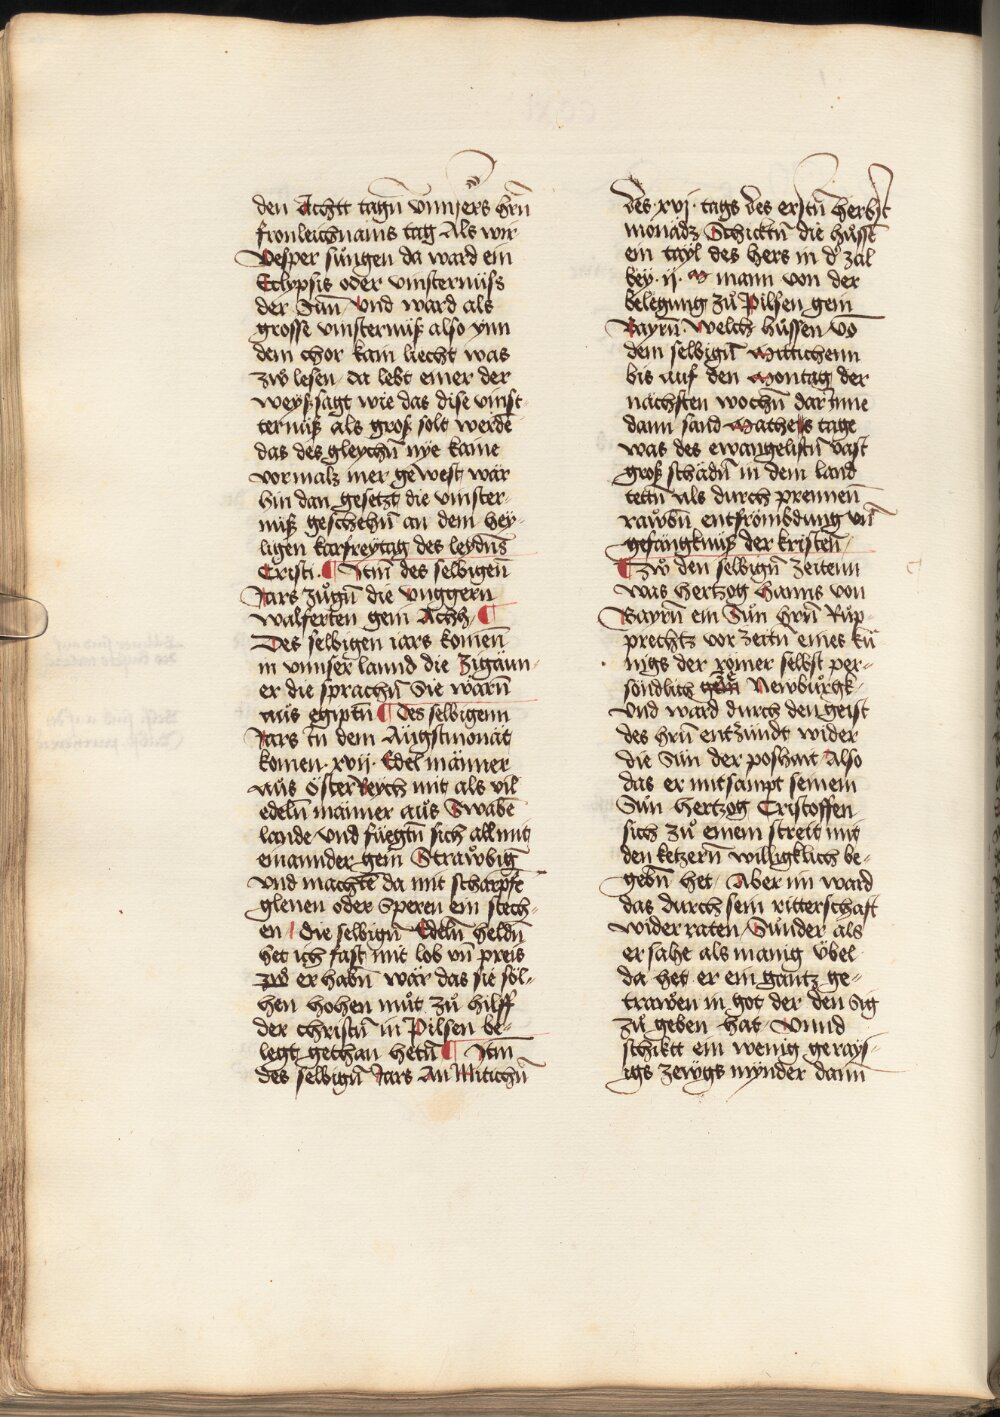 den Achtt tagñ vnnsers hrñ
fronleichnams tag Als wir
Vesper sůngen da ward ein
Eclypsis oder vinsternüss
der Sůn Vnd ward als
grosse vinsternuß also ynn
dem chor kain liecht was
zw lesen / da lebt einer der
weyßsagt wie das dise vinst
ternüß als groß solt werde
das des gleychñ nye kaine
vormalz mer gewest wär
hin dan gesetzt die vinster-
nüß geschehñ an dem hey-
ligen karfreytag des leydns
Cristi · ¶ Itm des selbigen
Jars zůgñ die vnggern
walferten gein Achh ¶
Des selbigen iars komen
in vnnser lannd die Zigaun-
er die sprachñ Sie wärñ
aůs egiptñ ¶ Des selbigenn
Jars in dem Augstmonat
komen · xvij · Edel männer
aůs Österreych mit als vil
edeln männer aůs Swabē
lande vnd füegtñ sich all mit
einannder gein Straẘbig
vnd machtē da mit scharpfē
glenen oder Speren ein stech-
en / die selbigñ Edeln heldñ
het ich fast mit lob vñ preis
zw erhabñ wär das sie söl-
hen hohen můt zů hilff
der christñ in Pilsen be-
legt gethan hetñ ¶ Itm
des selbigñ Jars An Mitichñ
des · xvj · tags des erstñ herbst
monadz Schicktñ die hussē
ein tayl des hers in d' zal
bey · ij · M mann von der
belegung zů Pilsen gein
Bayrñ · Welch hussen vō
dem selbigñ Mittichenn
bis auf den Montag der
nächsten wochñ dar Inne
dann sand Matheis tage
was des ewangelistñ vast
groß schädñ in dem land
tettñ als durch prennen
raẘbñ entfrömbdung vñ
gefängknüß der kristen /
¶ Zẘ den selbigñ zeitenn
was hertzog hanns von
Bayrñ ein Sůn hrñ Růp-
prechtz vor zeitñ eines kü
nigs der römer selbst per-
söndlich gein Newbůrgk-
vnd ward durch den geist
des hrñ entzündt wider
die Sün der poshait / Also
das er mitsampt seinem
Sůn hertzog Cristoffen
sich zů einem streit mit
den ketzerñ williglich be-
gebñ het / Aber im ward
das durch sein ritterschaft
wider raten / Sůnder als
er sahe als manig übel
da het er ein gantz ge-
traẘen in got der den sig
zů geben hat / Vnnd
schiktt ein wenig geraysi-
igs zeẘgs mynder dann